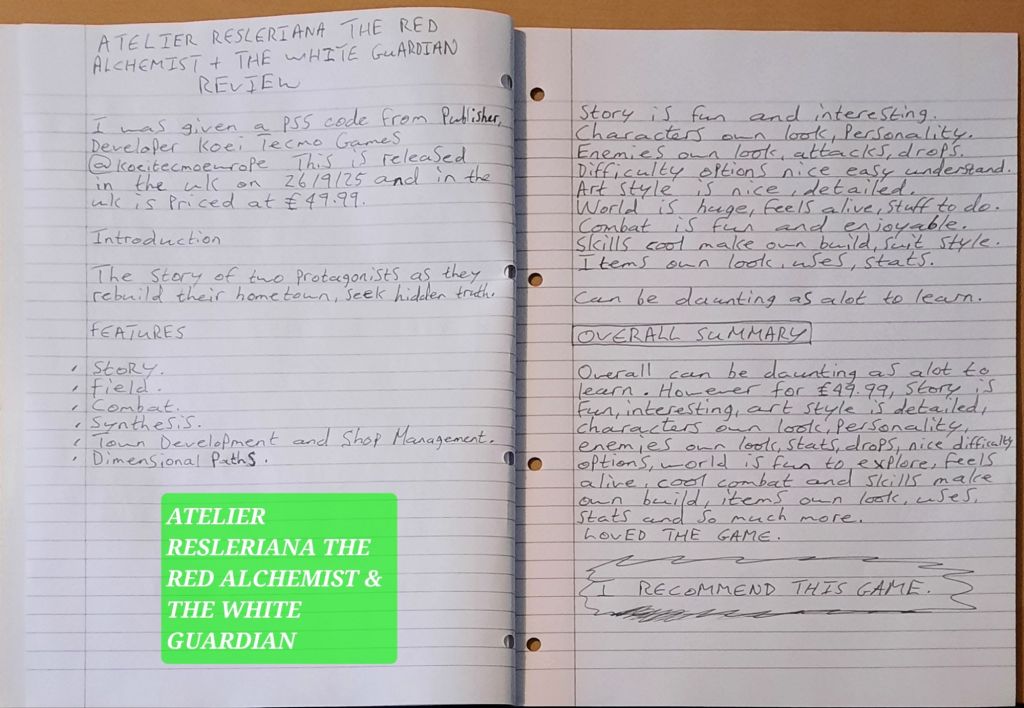 ATELIER RESLERIANA THE RED
ALCHEMIST + THE WHITE GUARDIAN
REVIEW
I was given a PS5 code from Publisher,
Developer Koei Tecmo Games
@koeitecmoeurope This is released
in the uk on 26/9/25 and in the
uk is Priced at £49.99.
Introduction
The Story of two Protagonists as they
rebuild their hometown, seek hidden truth.
FEATURES
• Story.
• Field.
• Combat.
• Synthesis.
• Town Development and Shop Management.
• Dimensional Paths.
ATELIER
RESLERIANA THE
RED ALCHEMIST &
THE WHITE
GUARDIAN
Story is fun and interesting.
Characters own look, Personality.
Enemies own look, attacks, drops.
Difficulty options nice easy understand.
Art style is nice, detailed.
World is huge, feels alive, stuff to do.
Combat is fun and enjoyable.
Skills cool make own build, suit style.
Items own look, uses, stats.
Can be daunting as alot to learn.
OVERALL SUMMARY
Overall can be daunting as alot to
learn. However for £49.99, Story is
fun, interesting, art style is detailed,
characters own look, Personality,
enemies own look, stats, drops, nice difficulty
options, world is fun to explore, feels
alive, cool combat and skills make
own build, items own look, uses,
stats and so much more.
LOVED THE GAME.
I RECOMMEND THIS GAME.